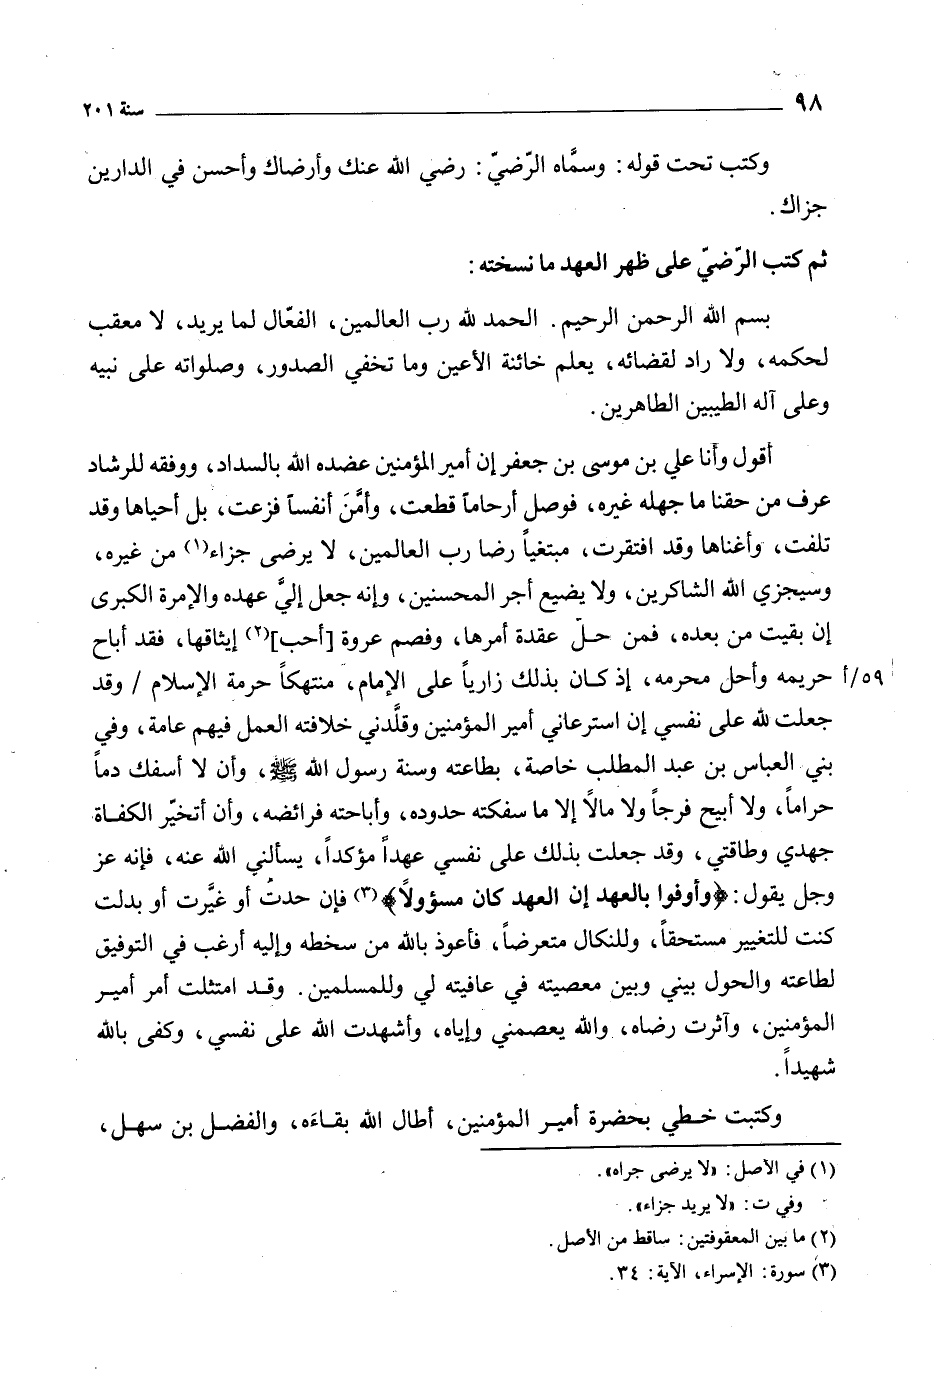 ٩٨ سنة ٢٠١
وكتب تحت قوله: وسمَّاه الرّضيّ: رضي الله عنك وأرضاك وأحسن في الدارين
جزاك.
ثم كتب الرّضيّ على ظهر العهد ما نسخته:
بسم الله الرحمن الرحيم. الحمد لله رب العالمين، الفعّال لما يريد، لا معقب
لحكمه، ولا راد لقضائه، يعلم خائنة الأعين وما تخفي الصدور، وصلواته على نبيه
وعلى آله الطيبين الطاهرين.
أقول وأنا علي بن موسى بن جعفر إن أمير المؤمنين عضده الله بالسداد، ووفقه للرشاد
عرف من حقنا ما جهله غيره، فوصل أرحاماً قطعت، وأمَّنَ أنفساً فزعت، بل أحياها وقد
تلفت، وأغناها وقد افتقرت، مبتغياً رضا رب العالمين، لا يرضى جزاء(١) من غيره،
وسيجزي الله الشاكرين، ولا يضيع أجر المحسنين، وإنه جعل إليَّ عهده والإمرة الكبرى
إن بقيت من بعده، فمن حلّ عقدة أمرها، وفصم عروة [أحب](٢) إيثاقها، فقد أباح
٥٩/أ حريمه وأحل محرمه، إذ كان بذلك زارياً على الإمام، منتهكاً حرمة الإسلام / وقد
جعلت لله على نفسي إن استرعاني أمير المؤمنين وقلَّدني خلافته العمل فيهم عامة، وفي
بني العباس بن عبد المطلب خاصة، بطاعته وسنة رسول الله ﷺ، وأن لا أسفك دماً
حراماً، ولا أبيح فرجاً ولا مالًا إلا ما سفكته حدوده، وأباحته فرائضه، وأن أتخيّر الكفاة
جهدي وطاقتي، وقد جعلت بذلك على نفسي عهداً مؤكداً، يسألني الله عنه، فإنه عز
وجل يقول: ﴿وأوفوا بالعهد إن العهد كان مسؤولاً﴾(٣) فإن حدتُ أو غيَّرت أو بدلت
كنت للتغيير مستحقاً، وللنكال متعرضاً، فأعوذ بالله من سخطه وإليه أرغب في التوفيق
لطاعته والحول بيني وبين معصيته في عافيته لي وللمسلمين. وقد امتثلت أمر أمير
المؤمنين، وآثرت رضاه، والله يعصمني وإياه، وأشهدت الله على نفسي، وكفى بالله
شهيداً.
وكتبت خطي بحضرة أمير المؤمنين، أطال الله بقاءَه، والفضل بن سهل،
(١) في الأصل: «لا يرضى جراه».
وفي ت: «لا يريد جزاء».
(٢) ما بين المعقوفتين: ساقط من الأصل.
(٣) سورة: الإسراء، الآية: ٣٤.